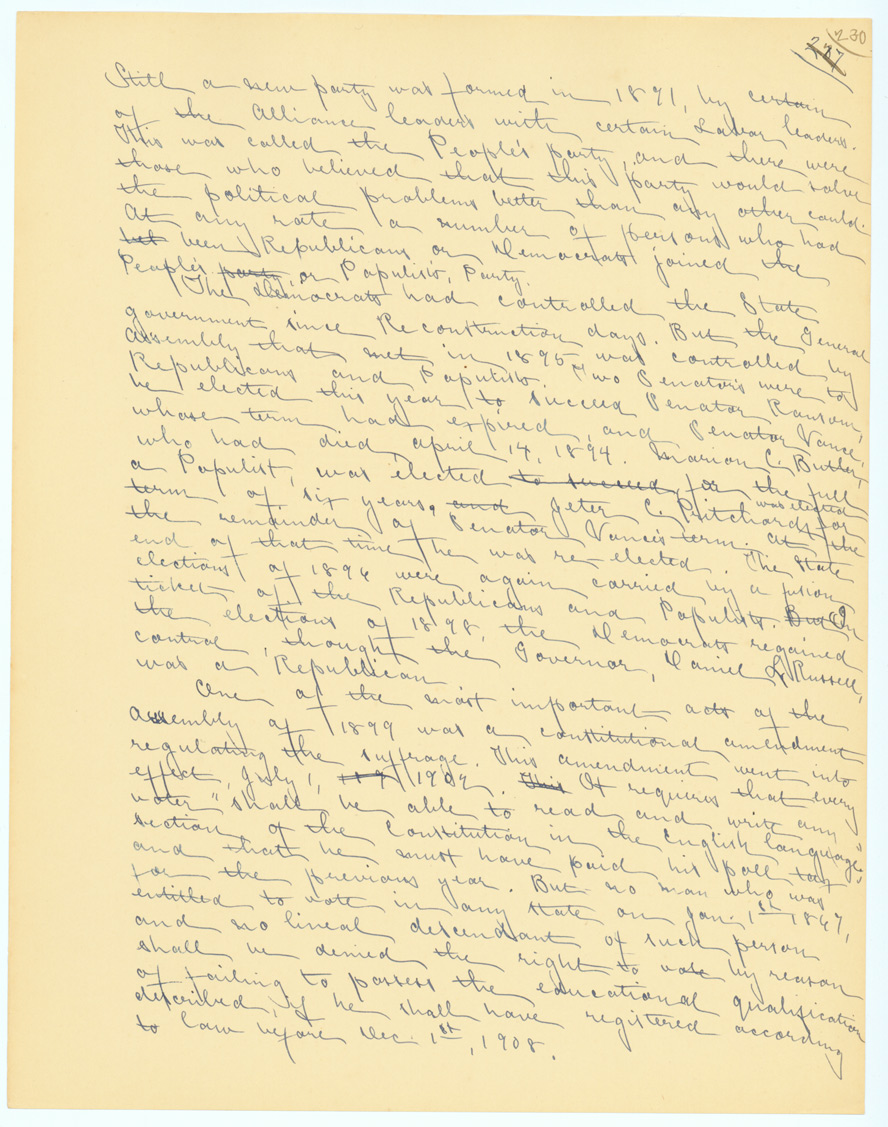 230
227
Still a new party was formed in 1891, by certain
of the Alliance leaders with certain Labor leaders.
This was called the People's party, and there were
those who believed that this party would solve
the political problems better than any other could.
At any rate a number of persons who had
bet been Republicans or Democrats joined the
People's party, or Populist, Party.
The Democrats had controlled the State
government since Reconstruction days. But the General
Assembly that met in 1895 was controlled by
Republicans and Populists. Two Senators were to
be elected this year to succeed Senator Ransom,
whose term had expired, and Senator Vance,
who had died April, 14, 1894. Marion C. Butler,
a Populist, was elected to succeed for the full
term of six years, and Jeter C. Pritchard was elected for
the remainder of Senator Vance's term. At the
end of that time he was re-elected. The State
elections of 1896 were again carried by a fusion
ticket of the Republicans and Populists. But On
the elections of 1898, the Democrats regained
control, though the Governor, Daniel L. Russell,
was a Republican
One of the most important acts of the
Assembly of 1899 was a constitutional amendment
regulating the suffrage. This amendment went into
effect, July 1, 190 1902. This It requires that every
voter "shall be able to read and write any
section of the Constitution in the English language"
and that he must have paid his poll tax
for the previous year. But "no man who was
entitled to vote in any State on Jan. 1st 1867,
and no lineal descendant of such person
shall be denied the right to vote by reason
of failing to possess the educational qualification
described, if he shall have registered according
to law before Dec. 1st, 1908.